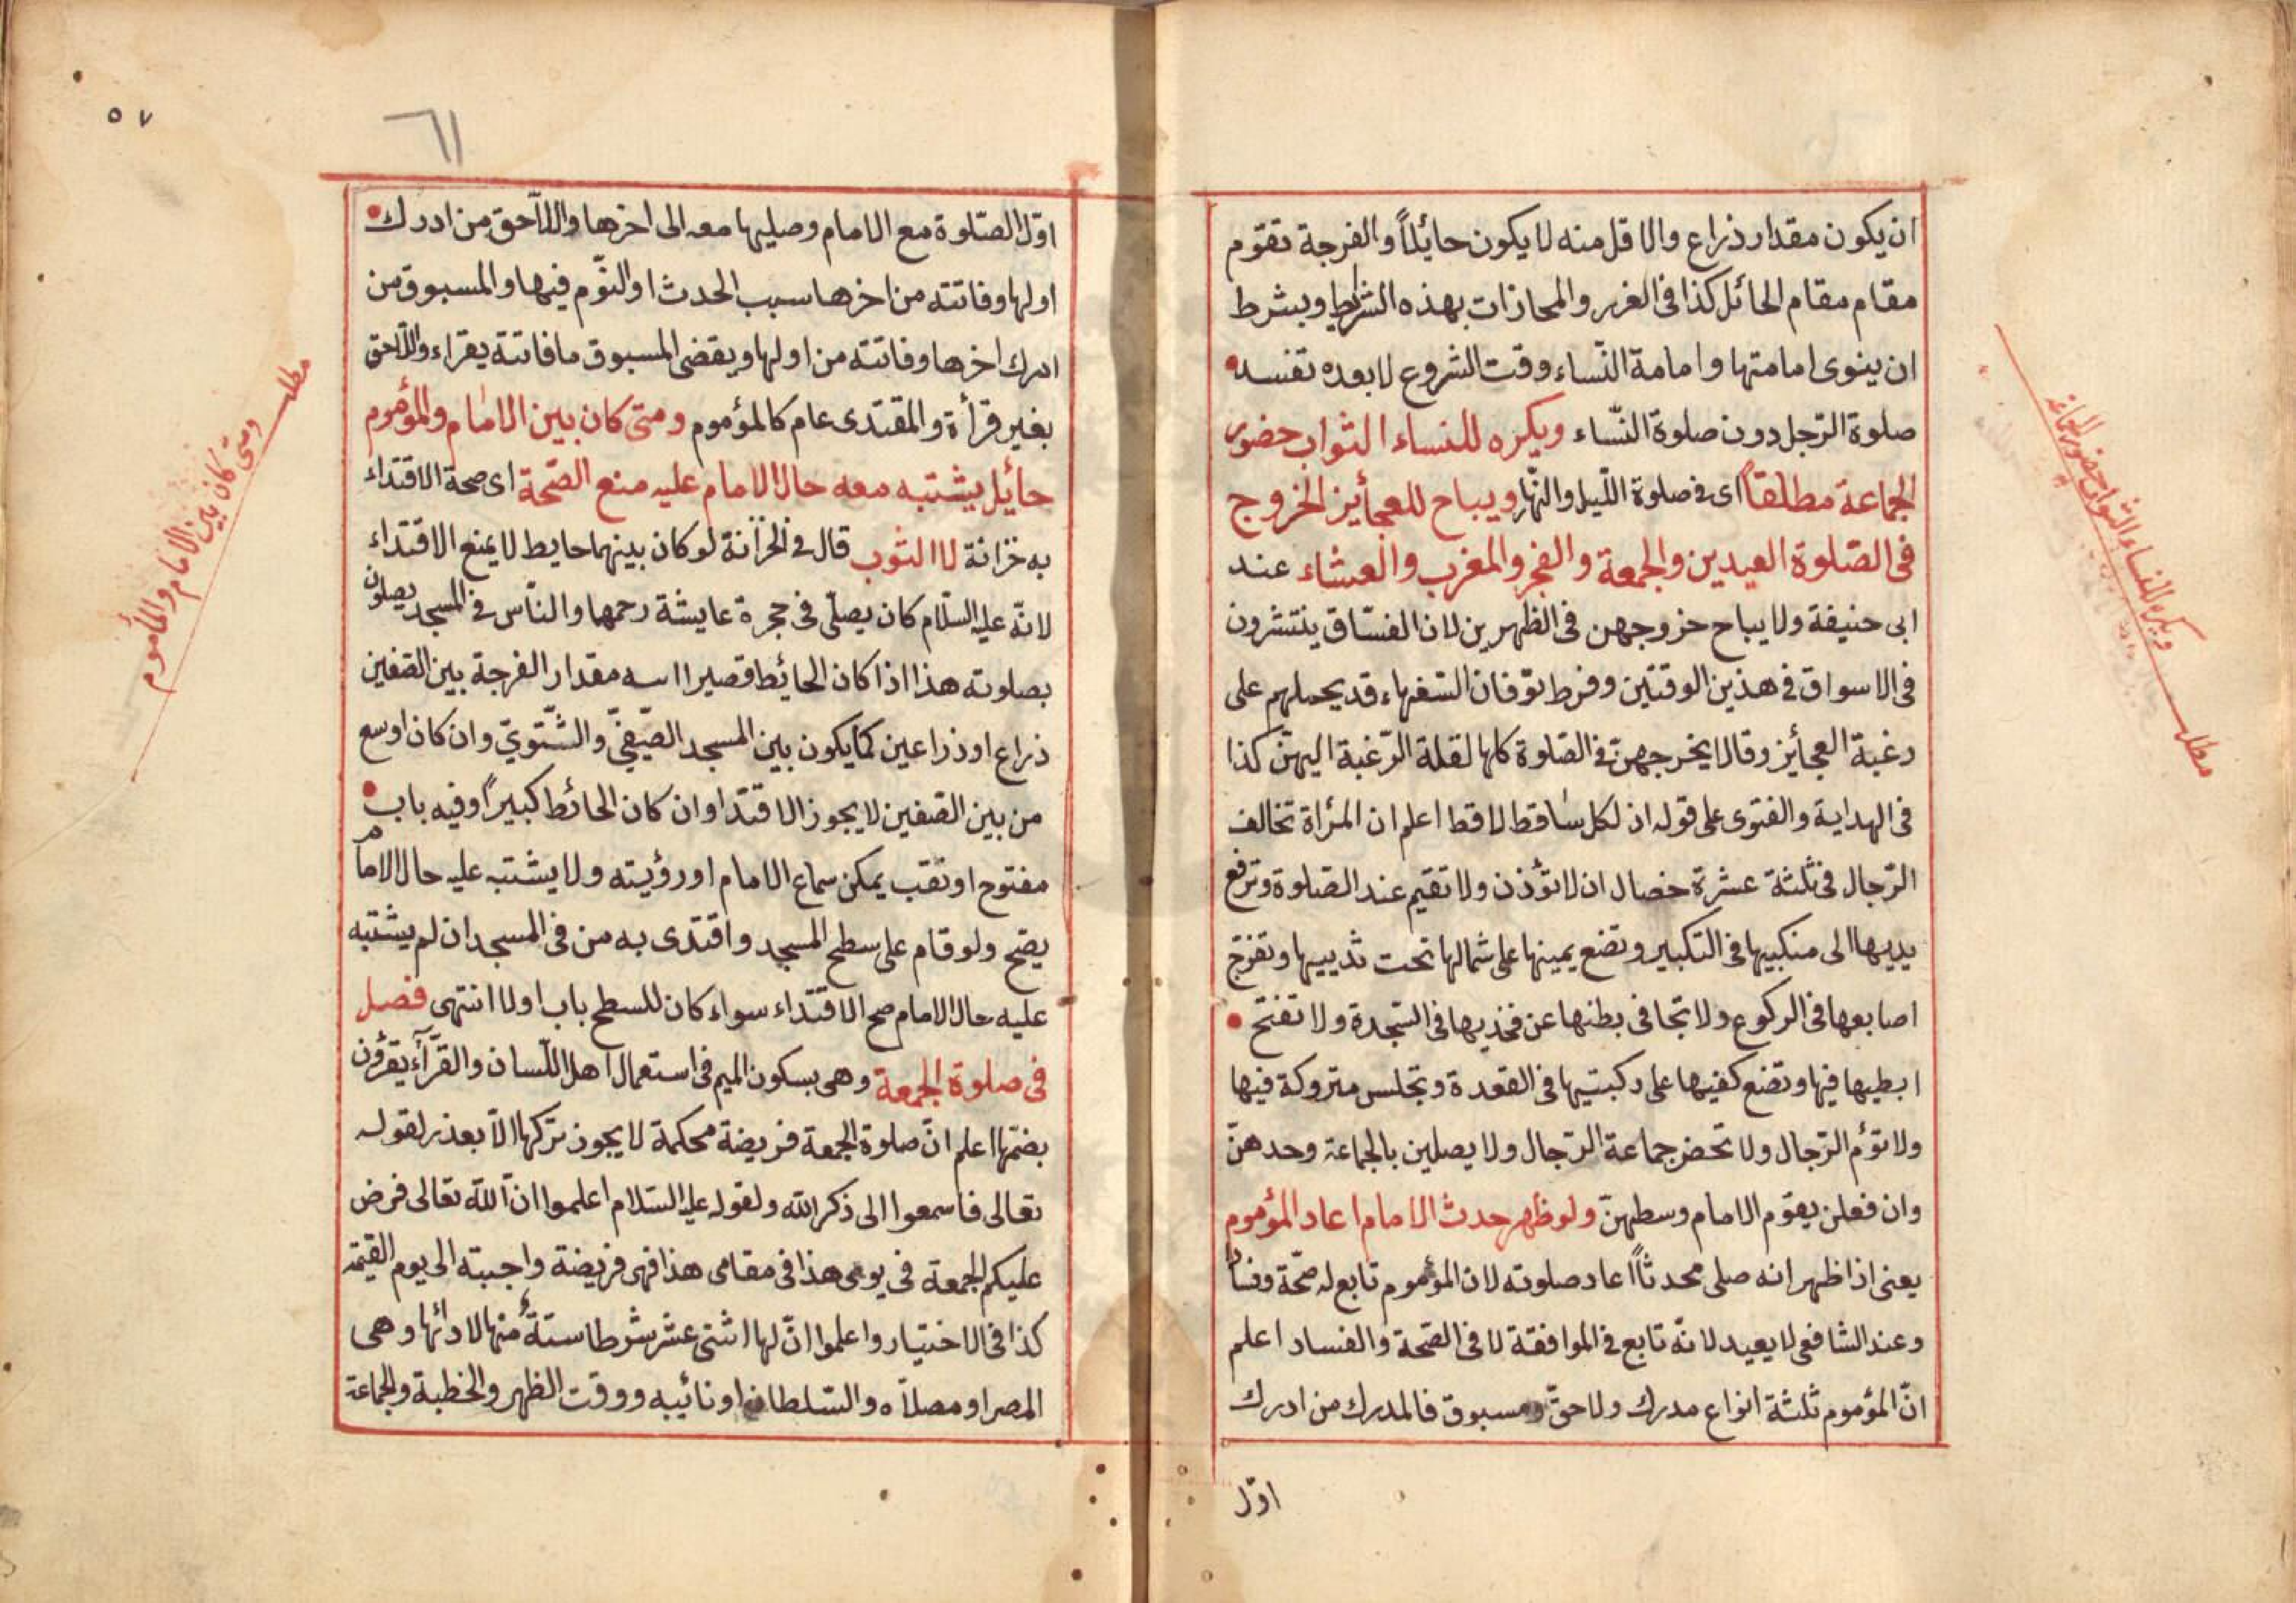 ان يكون مقدار ذراع والاقل منه لا يكون حائلاً والفرجة تقوم
مقام مقام الحائل كذا فى الغرر والمحاذات بهذه الشرايط وبشرط
ان ينوى امامتها وامامة النّساء وقت الشروع لا بعده تفسد
صلوة الرّجل دون صلوة النّساء ويكره للنساء الثواب حضور
الجماعة مطلقاً اى فى صلوة اللّيل والنّهار ويباح للعجأيز الخروج
فى الصّلوة العيدين والجمعة والفجر والمغرب والعشاء عند
ابى حنيفة ولا يباح خروجهن فى الظهرين لان الفسّاق ينتشرون
فى الاسواق فى هذين الوقتين وفرط توقان السّفهاء قد يحملهم على
رغبة العجأيز وقالا يخرجهنّ فى الصّلوة كلها لقلة الرّغبة اليهنّ كذا
فى الهداية والفتوى على قوله ان لكل ساقط لاقط اعلم ان المرأة تخالف
الرّجال فى ثلثة عشرة خصال ان لا تؤذن ولا تقيم عند الصّلوة وترفع
يديها الى منكبيها فى التكبير وتضع يمينها على شمالها تحت ثدييها وتفرّج
اصابعها فى الركوع ولا تجافى بطنها عن فخذيها فى السّجدة ولا تفتح
ابطيها فيها وتضع كفيها على ركبتيها فى القعدة وتجلس متروكة فيها
ولا تؤم الرّجال ولا تحضر جماعة الرّجال ولا يصلين بالجماعة وحدهنّ
وان فعلن يقوّم الامام وسطهنّ ولو ظهر حدث الامام اعاد المؤموم
يعنى اذا ظهر انه صلى محدثاً اعاد صلوته لان المؤموم تابع له صحّة وفسا
وعند الشافعى لا يعيد لانّه تابع فى الموافقة لا فى الصّحة والفساد اعلم
انّ المؤموم ثلثة انواع مدرك ولاحق ومسبوق فالمدرك من ادرك
اوّل
ويكره للنساء الثواب حضور الجماعة
مطلب
٥٧
٦١
اوّل الصّلوة مع الامام وصليها معه الى اخرها واللاّحق من ادرك
اولها وفاتته من اخرها سبب الحدث او النّوم فيها والمسبوق من
ادرك اخرها وفاتته من اولها ويقضى المسبوق ما فاتتة يقراء واللّاحق
بغير قرأة والمقتدى عام كالمؤموم ومتى كان بين الامام والمؤموم
حأيل يشتبه معه حال الامام عليه منع الصّحة اى صحة الاقتداء
به خزانة لا الثوب قال فى الخزانة لو كان بينهما حايط لا يمنع الاقتداء
لانّه عليه السّلام كان يصلّى فى حجرة عايشة رحمها والنّاس فى المسجد يصلون
بصلوته هذا اذا كان الحائط قصيرا اسه مقدار الفرجة بين الصّفين
ذراع او ذراعين كما يكون بين المسجد الصّيفىّ والشّتوىّ وان كان اوسع
من بين الصّفين لا يجوز الاقتدا وان كان الحائط كبيراً وفيه باب
مفتوح او ثقب يمكن سماع الامام او رؤيته ولا يشتبه عليه حال الامام
يصّح ولو قام على سطح المسجد واقتدى به من فى المسجد ان لم يشتبه
عليه حال الامام صح الاقتداء سواء كان للسطح باب اولا انتهى فصل
فى صلوة الجمعة وهى بسكون الميم فى استعمال اهل اللّسان والقرّآء يقرؤن
بضمّها اعلم انّ صلوة الجمعة فريضة محكمة لا يجوز تركها الاّ بعذر لقوله
تعالى فاسمعوا الى ذكر الله ولقوله عليه السّلام اعلموا انّ الله تعالى فرض
عليكم الجمعة فى يومى هذا فى مقامى هذا فهى فريضة واجبتة الى يوم القيمة
كذا فى الاختيار واعلموا انّ لها اثنى عشر شرطا ستةٌ منها لادائها وهى
المصر او مصلاّه والسّلطان او نائيبه ووقت الظهر والخطبة والجماعة
مطلب
ومتى كان بين الامام والمأموم